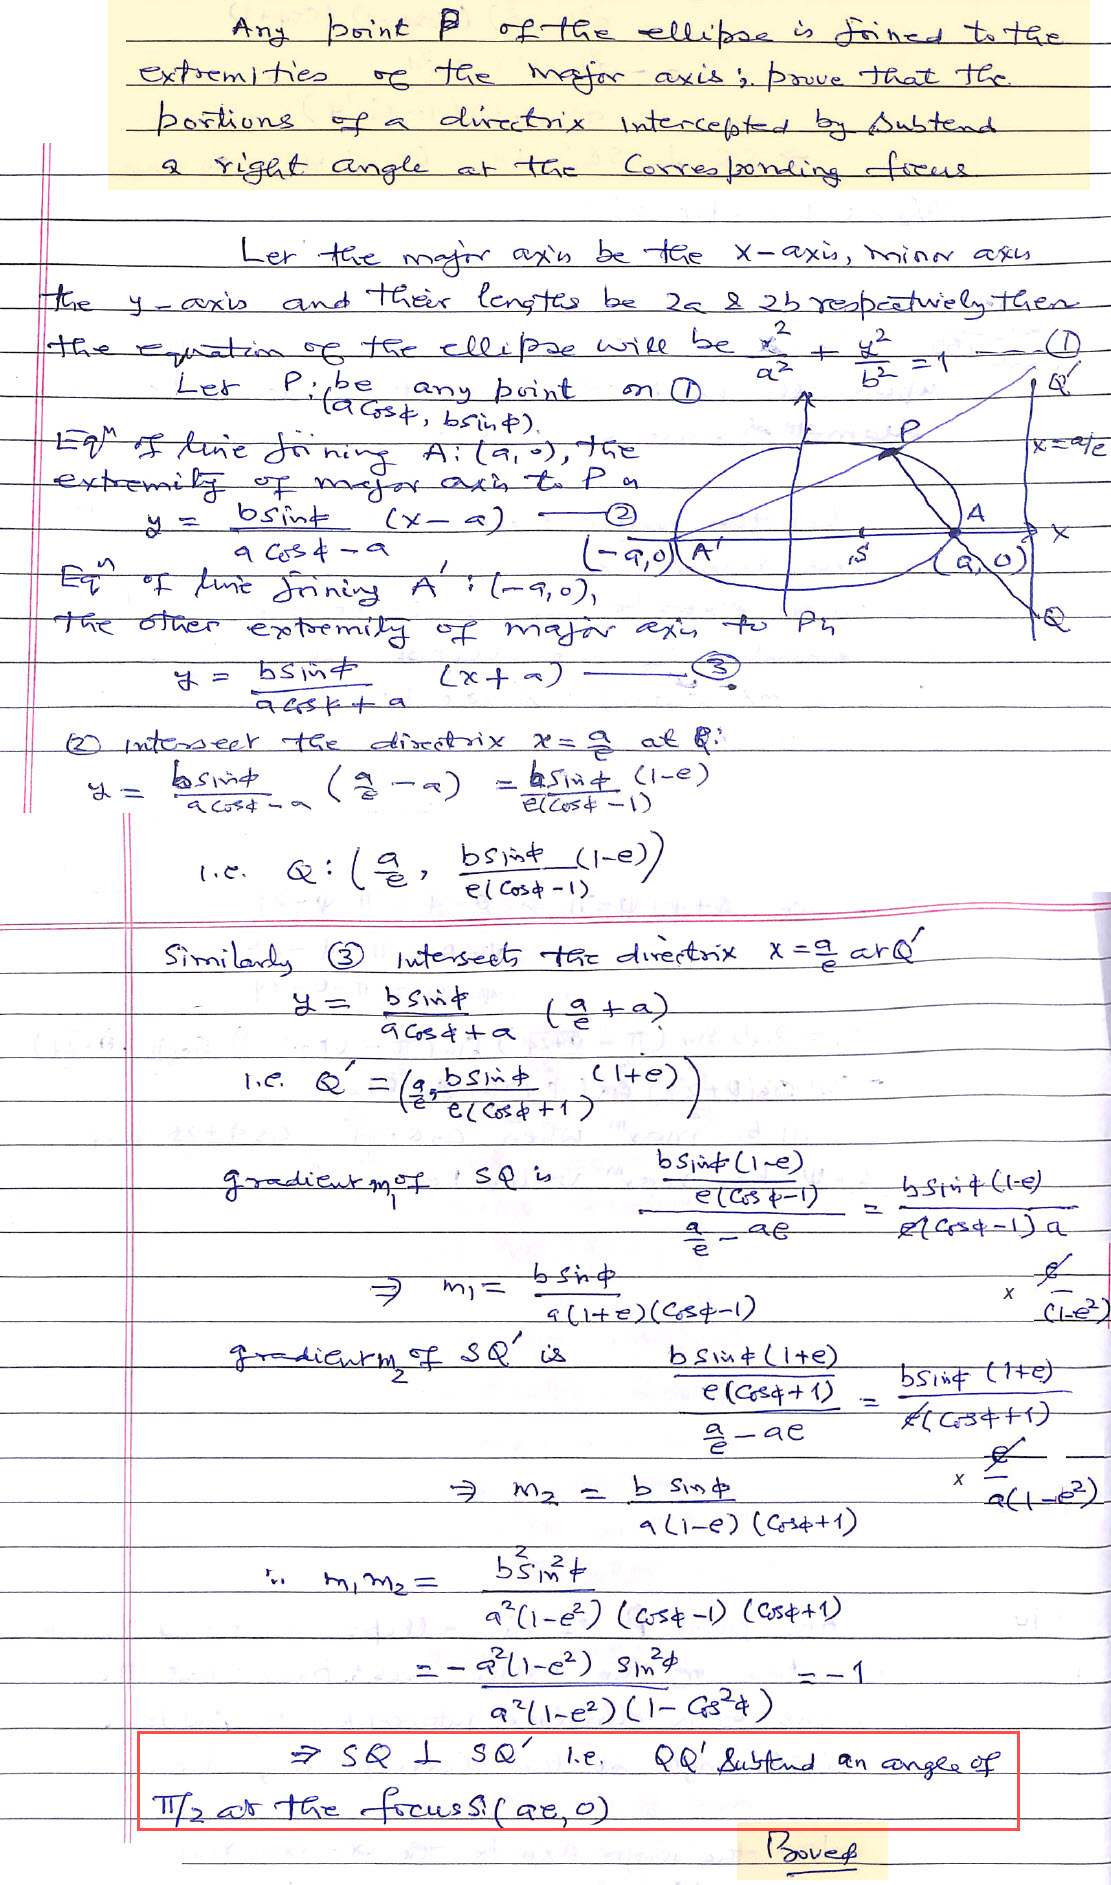 Any point P of the ellipse is joined to the
extremities of the major axis; prove that the
portions of a directrix intercepted by subtend
a right angle at the corresponding focus
Let the major axis be the x-axis, minor axis
the y-axis and their lengths be 2a & 2b respectively then
the equation of the ellipse will be x²/a² + y²/b² = 1 --- (1)
Let P: be any point on (1)
(a cosϕ, b sinϕ).
Eqⁿ of line joining A: (a, 0), the
extremity of major axis to P is
y = b sinϕ/(a cosϕ - a) (x - a) — (2)
Eqⁿ of line joining A': (-a, 0),
the other extremity of major axis to P is
y = b sinϕ/(a cosϕ + a) (x + a) — (3)
Q'
P
x = a/e
A
X
(-a, 0)
A'
S
(a, 0)
Q
(2) intersect the directrix x = a/e at Q:
y = b sinϕ/(a cosϕ - a) (a/e - a) = b sinϕ (1-e)/(e(cosϕ - 1))
i.e. Q: (a/e, b sinϕ (1-e)/(e(cosϕ - 1)))
Similarly (3) intersects the directrix x = a/e at Q'
y = b sinϕ/(a cosϕ + a) (a/e + a)
i.e. Q' = (a/e, b sinϕ (1+e)/(e(cosϕ + 1)))
gradient m₁ of SQ is (b sinϕ (1-e)/(e(cosϕ - 1)))/(a/e - ae) = b sinϕ (1-e)/(e(cosϕ - 1) a) x e/(1-e²)
⇒ m₁ = b sinϕ/(a(1+e)(cosϕ - 1))
gradient m₂ of SQ' is (b sinϕ (1+e)/(e(cosϕ + 1)))/(a/e - ae) = b sinϕ (1+e)/(e(cosϕ + 1)) x e/(a(1-e²))
⇒ m₂ = b sinϕ/(a(1-e)(cosϕ + 1))
∵ m₁m₂ = b² sin²ϕ/(a²(1-e²)(cosϕ - 1)(cosϕ + 1))
= - a²(1-e²) sin²ϕ/(a²(1-e²)(1 - cos²ϕ)) = -1
⇒ SQ ⊥ SQ' i.e. QQ' subtend an angle of
π/2 at the focus S: (ae, 0)
Proved